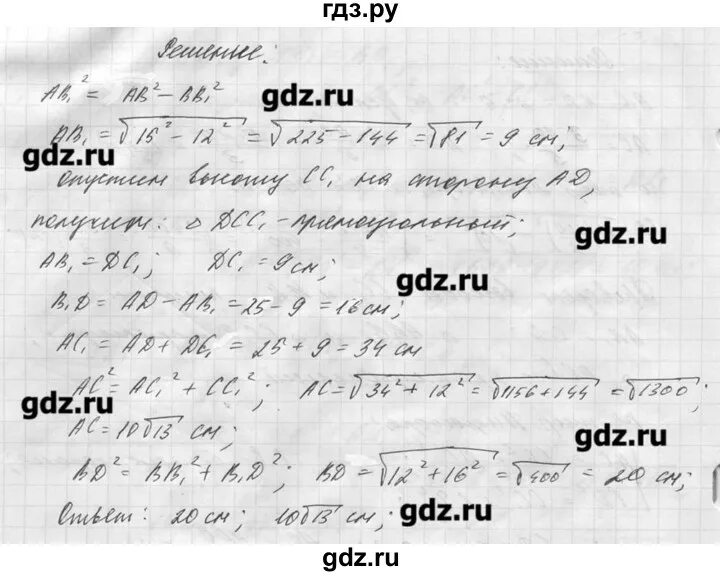 гдз.ру
Решение:
AB₁² = AB² − BB₁²
gdz.ru
AB₁ = √15² − 12² = √225 − 144 = √81 = 9 см;
gdz.ru
опустим высоту CC₁ на сторону AD,
получим: △ DCC₁ - прямоугольный;
gdz.ru
AB₁ = DC₁; DC₁ = 9 см;
gdz.ru
B₁D = AD − AB₁ = 25 − 9 = 16 см;
AC₁ = AD + DC₁ = 25 + 9 = 34 см
AC² = AC₁² + CC₁²; AC = √34² + 12² = √1156 + 144 = √1300;
gdz.ru
AC = 10√13 см;
gdz.ru
BD² = BB₁² + B₁D²; BD = √12² + 16² = √400 = 20 см;
Ответ: 20 см; 10√13 см;
gdz.ru
gdz.ru